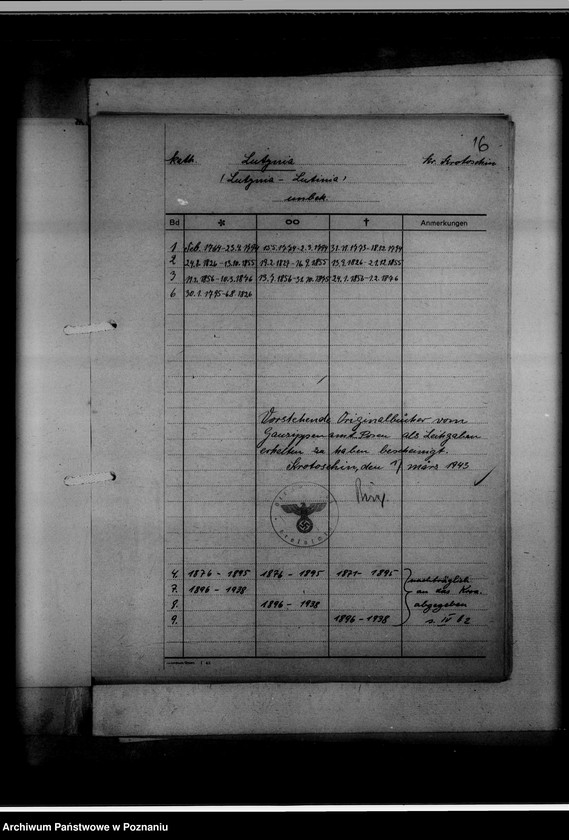 16
kath. Lutynia Kr. Krotoschin
(Lutynia - Lutinia)
unbek.
Bd * ∞ † Anmerkungen
1 Feb. 1764-23.4.1794 15.5.1774-2.3.1794 31.11.1773-18.12.1794
2 24.8.1826-13.10.1855 19.2.1827-16.9.1855 13.9.1826-21.12.1855
3 19.2.1856-10.3.1876 13.7.1856-31.10.1875 24.1.1856-1.2.1876
6 30.1.1795-6.8.1826
Vorstehende Originalbücher vom
Gausippenamt Posen als Leihgaben
erhalten zu haben bescheinigt.
Krotoschin, den März 1943
4. 1876 - 1895 1876 - 1895 1871 - 1895 nachträglich
7. 1896 - 1938 an das Krva.
8. 1896 - 1938 abgegeben
9. 1896 - 1938 s. IV 62
Archiwum Państwowe w Poznaniu